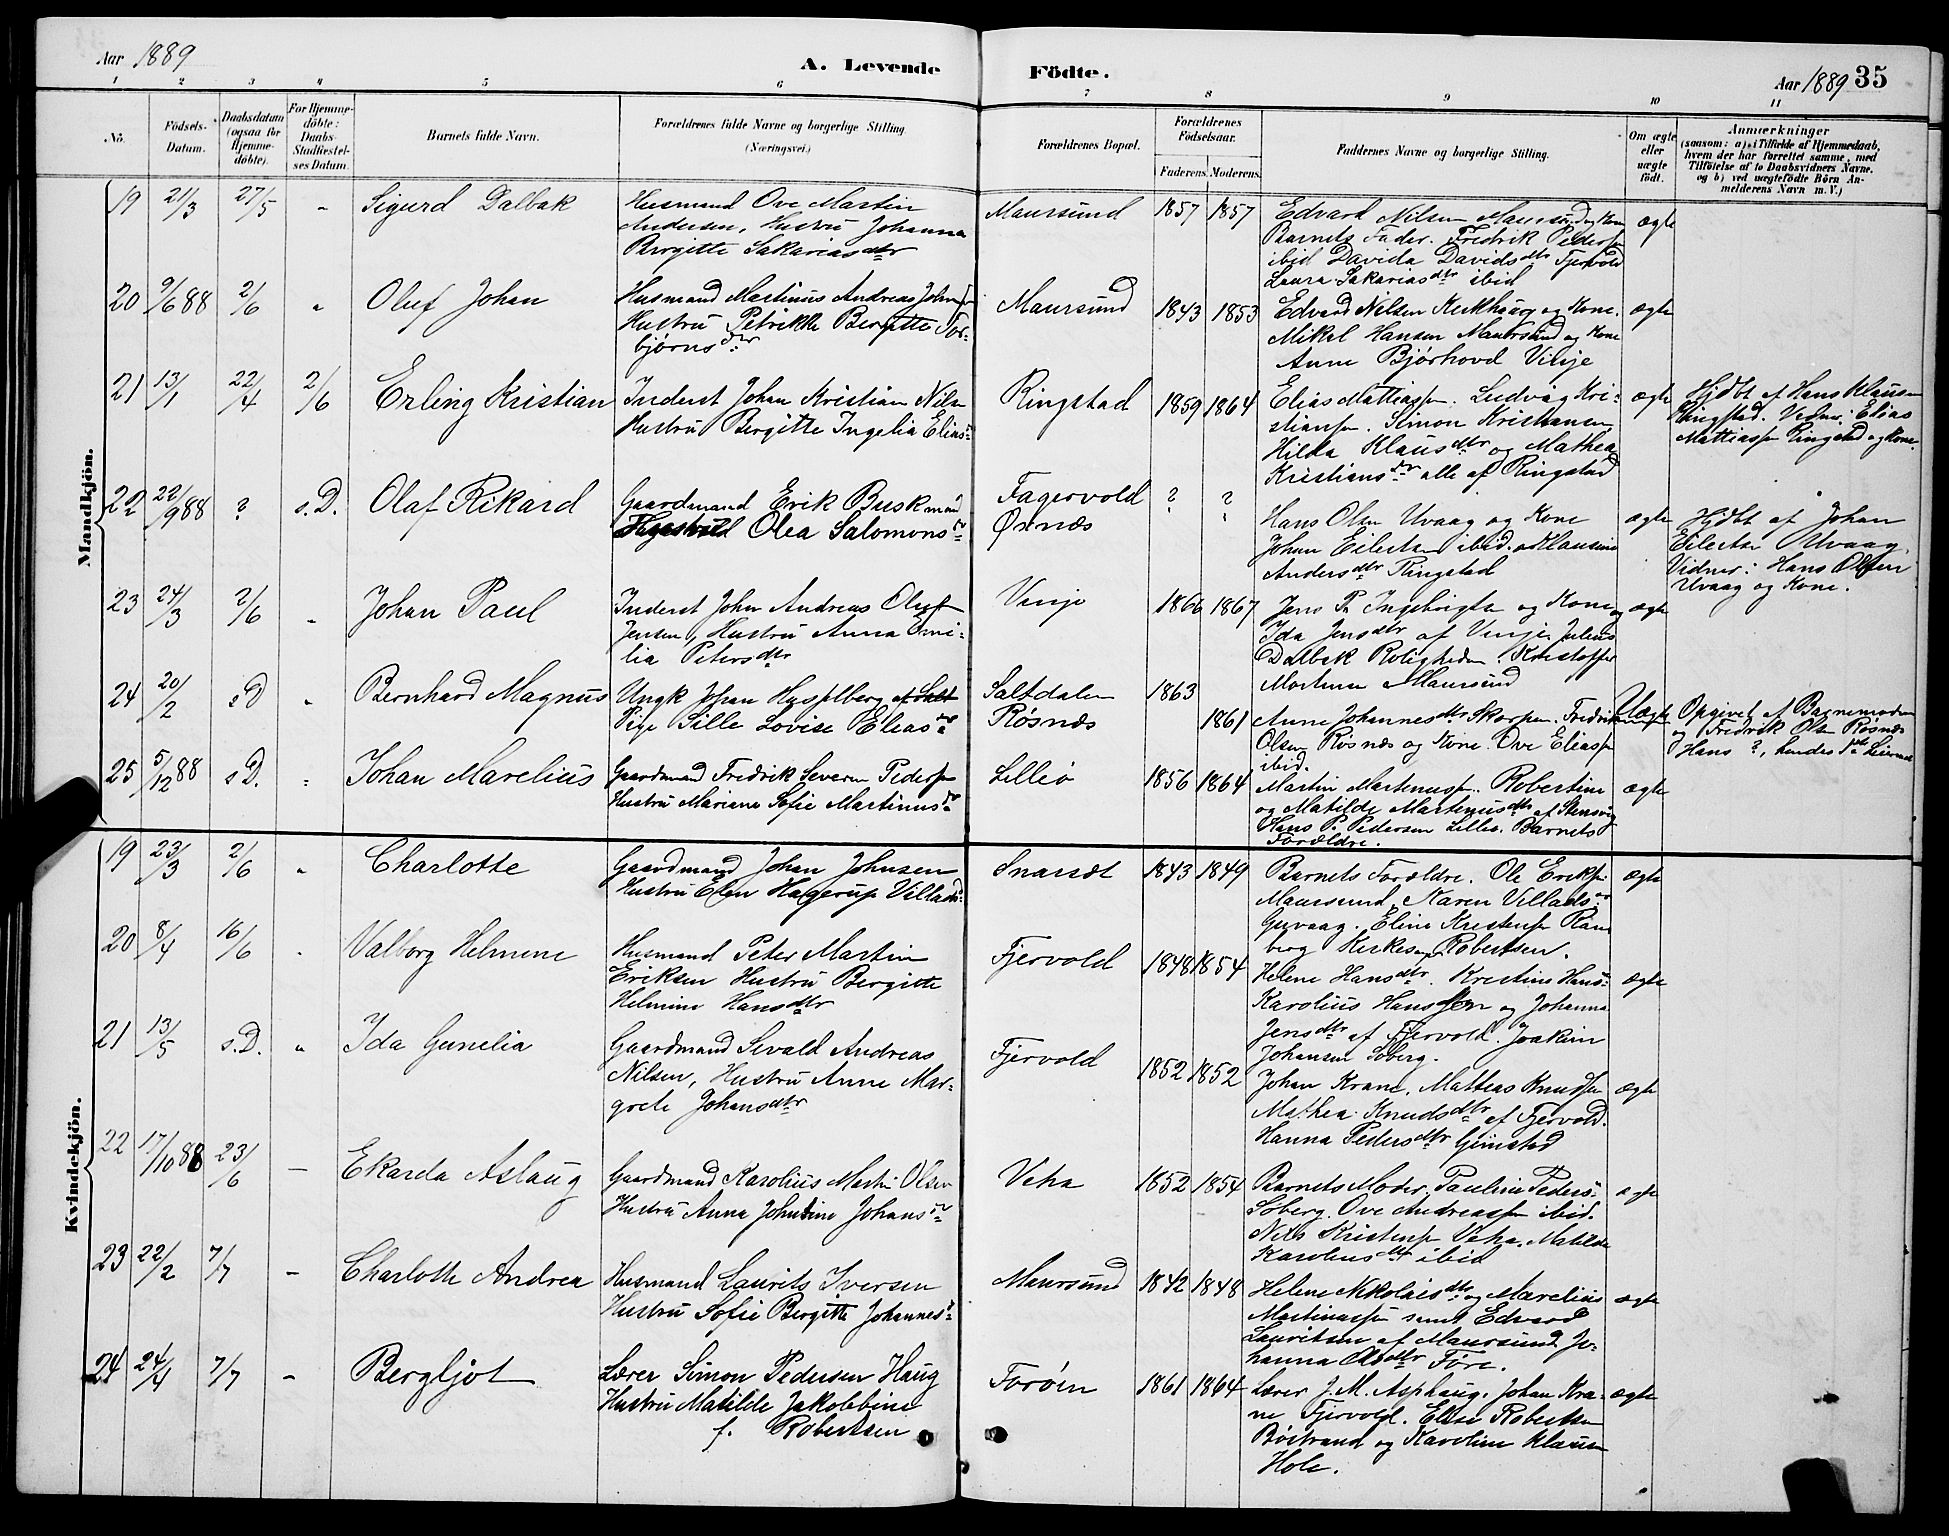 Aar 1889
A. Levende
Födte.
Aar 1889 35
1 2 3 4 5 6 7 8 9 10 11
No.
Födsels-
Datum.
Daabsdatum
(ogsaa for
Hjemme-
döbte).
For Hjemme-
döbte:
Daabs-
Stadfæstel-
ses Datum.
Barnets fulde Navn.
Forældrenes fulde Navne og borgerlige Stilling.
(Næringsvei.)
Forældrenes Bopæl.
Forældrenes
Födselsaar.
Faderens. Moderens.
Faddernes Navne og borgerlige Stilling.
Om ægte
eller
uægte
födt.
Anmærkninger
(saasom: a) i Tilfælde af Hjemmedaab,
hvem der har forrettet samme, med
Tilföielse af to Daabsvidners Navne.
og b) ved uægtefödte Börn An-
melderens Navn m. V.)
Mandkjön.
19 21/3 27/5 " Sigurd Dalbak
Husmand Ove Martin
Andersen, Hustru Johanna
Birgitte Sakariasdtr
Maursund 1857 1857
Edvard Nilsen Maursund og Kone
Barnets Fader. Fredrik Peders
ibid Davida Davidsdtr Fjervold
Laura Sakariasdtr ibid
ægte
20 9/6 88 2/6 " Oluf Johan
Husmand Martinus Andreas Johns
Hustru Petrikke Bergitte Tor-
bjørnsdtr
Maursund 1843 1853
Edvard Nilsen Kirkhaug og Kone.
Mikal Hansen Maursund og Kone
Anne Bjørhovd Vinje
ægte
21 13/1 22/4 2/6 Erling Kristian
Inderst Johan Kristian Nils
Hustru Bergitte Ingelia Elias
Ringstad 1859 1864
Elias Mattiass. Ludvig Kri-
stians. Simon Kristiansen
Hilda Klausdtr og Mathea
Kristiansdtr alle af Ringstad
ægte
Hjdbt af Hans Klausen
Ringstad. Vidner: Elias
Mattiass Ringstad og Kone.
22 22/9 88 ? s.D. Olaf Rikard
Gaardmand Erik Buskmand
Olea Salomons
Fagervold
Øxnæs
? ?
Hans Olsen Uvaag og Kone
Johan Eilertsen ibid. Klausine
Andersdtr Ringstad
ægte
Hjdbt af Johan
Eilertsen Uvaag.
Vidner: Hans Olsen
Uvaag og Kone.
23 24/3 2/6 " Johan Paul
Inderst John Andreas Oluf
Jensen, Hustru Anna Emi-
lia Petersdtr
Vinje 1866 1867
Jens P. Ingebrigts og Kone og
Ida Jensdtr af Vinje. Julius
Dalbak Roligheden. Kristoffer
Mortensen Maursund
ægte
24 20/2 sD " Bernhard Magnus
Ungk Johan
Pige Sille Lovise Elias
Saltdalen
Røsnæs
1863
1861
Anne Johannesdtr Skorpen. Fredrik
Olsen Røsnæs og Kone. Ove Elias
ibid.
Uægte
Opgivet af Barnemoderen
og Fredrik Olsen Røsnæs
Hans ?, hendes
25 5/12 88 sD. " Johan Marelius
Gaardmand Fredrik Severin Peders
Hustru Mariane Sofie Martinus
Lilleø 1856 1864
Martin Martinuss. Robertine
og Matilde Martinusdtr af Stensvig
Hans P. Pedersen Lilleø. Barnets
Forældre.
ægte
Kvindekjön.
19 23/3 2/6 " Charlotte
Gaardmand Johan Johnsen
Hustru Elen Hagerup Villads
Snarsæt 1843 1849
Barnets Forældre. Ole Eriks
Maursund. Karen Villads
Guvaag. Eline Kristens Ram
berg Kirkes Robertsen.
ægte
20 8/4 16/6 " Valborg Helmine
Husmand Peter Martin
Eriksen Hustru Bergitte
Helmine Hansdtr
Fjervold 1848 1854
Helene Hansdtr. Kristine Hans-
Karolius Hanssen og Johanna
Jensdtr af Fjervold. Joakim
Johansen Soberg.
ægte
21 13/5 s.D. " Ida Gunelia
Gaardmand Sevald Andreas
Nilsen, Hustru Anne Mar-
grete Johansdtr
Fjervold 1852 1852
Johan Krane, Mattias Knuds
Mathea Knudsdtr af Fjervold.
Hanna Pedersdtr Gimstad
ægte
22 17/10 88 23/6 – Ekarda Aslaug
Gaardmand Karolius Martin Olsen
Hustru Anna Johndine Johans
Veha 1852 1854
Barnets Moder. Pauline Peders-
Soberg. Ove Andreass ibid.
Nils Kristens Veha. Matilde
Karoliusdtr ibid
ægte
23 22/2 7/7 – Charlotte Andrea
Husmand Laurits Iversen
Hustru Sofie Bergitte Johannes
Maursund 1842 1848
Helene Nikolaisdtr og Marelius
Martinuss samt Edvard
Lauritsen af Maursund. Jo-
hanna Olsdtr Føre.
ægte
24 24/4 7/7 – Bergljot
Lærer Simon Pedersen Haug
Hustru Matilde Jakobbine
f. Robertsen
Forøen 1861 1864
Lærer J. M. Asphaug. Johan Kra-
ne Fjervold. Elise Robertsen
Bøstrand og Karoline Klausen
Hole.
ægte